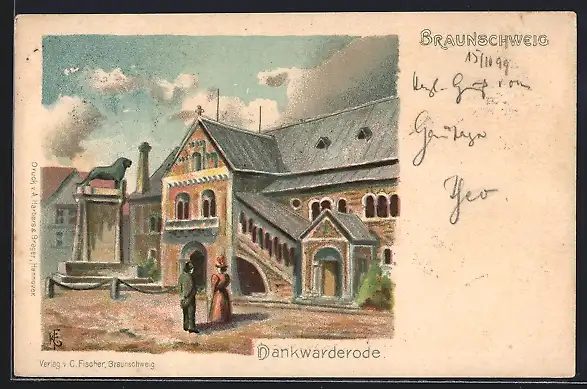 BRAUNSCHWEIG
15/10 99
Herzl. Gruß vom
Theo
Druck v. A. Harbers & Brager, Hannover.
Dankwarderode.
Verlag v. C. Fischer, Braunschweig